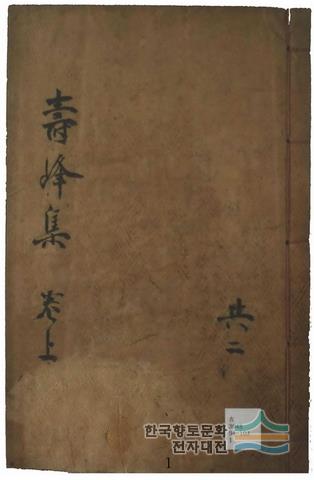 壽峰集 卷上
共二
한국향토문화
전자대전
1